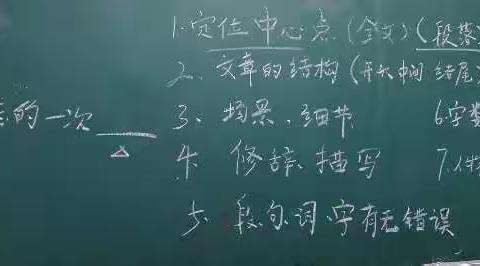 1.定位中心点(全文)(段落
2、文章的结构(开头中间 结尾)
的一次
3、场景、细节 6.字数
4. 修辞 描写 7.
5. 段句词字有无错误